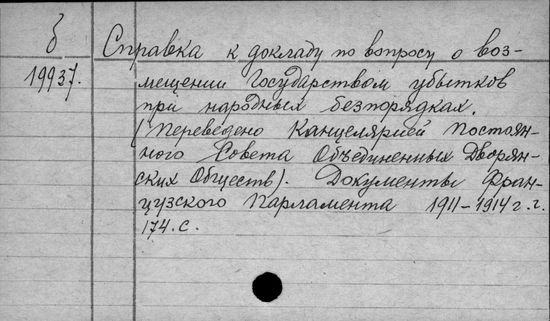 б
19937.
Справка к докладу по вопросу о воз-
мещении Государством убытков
при народных безпорядках.
(Переведено Канцелярией Постоян-
ного Совета Объединенных Дворян-
ских Обществ). Документы Фран-
цузского Парламента 1911-1914 г.г.
174.с.